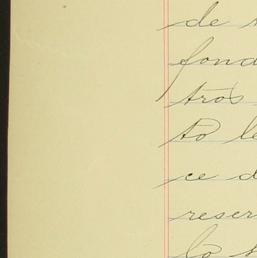 de
fond
tros
to le
ce d
reser
lo